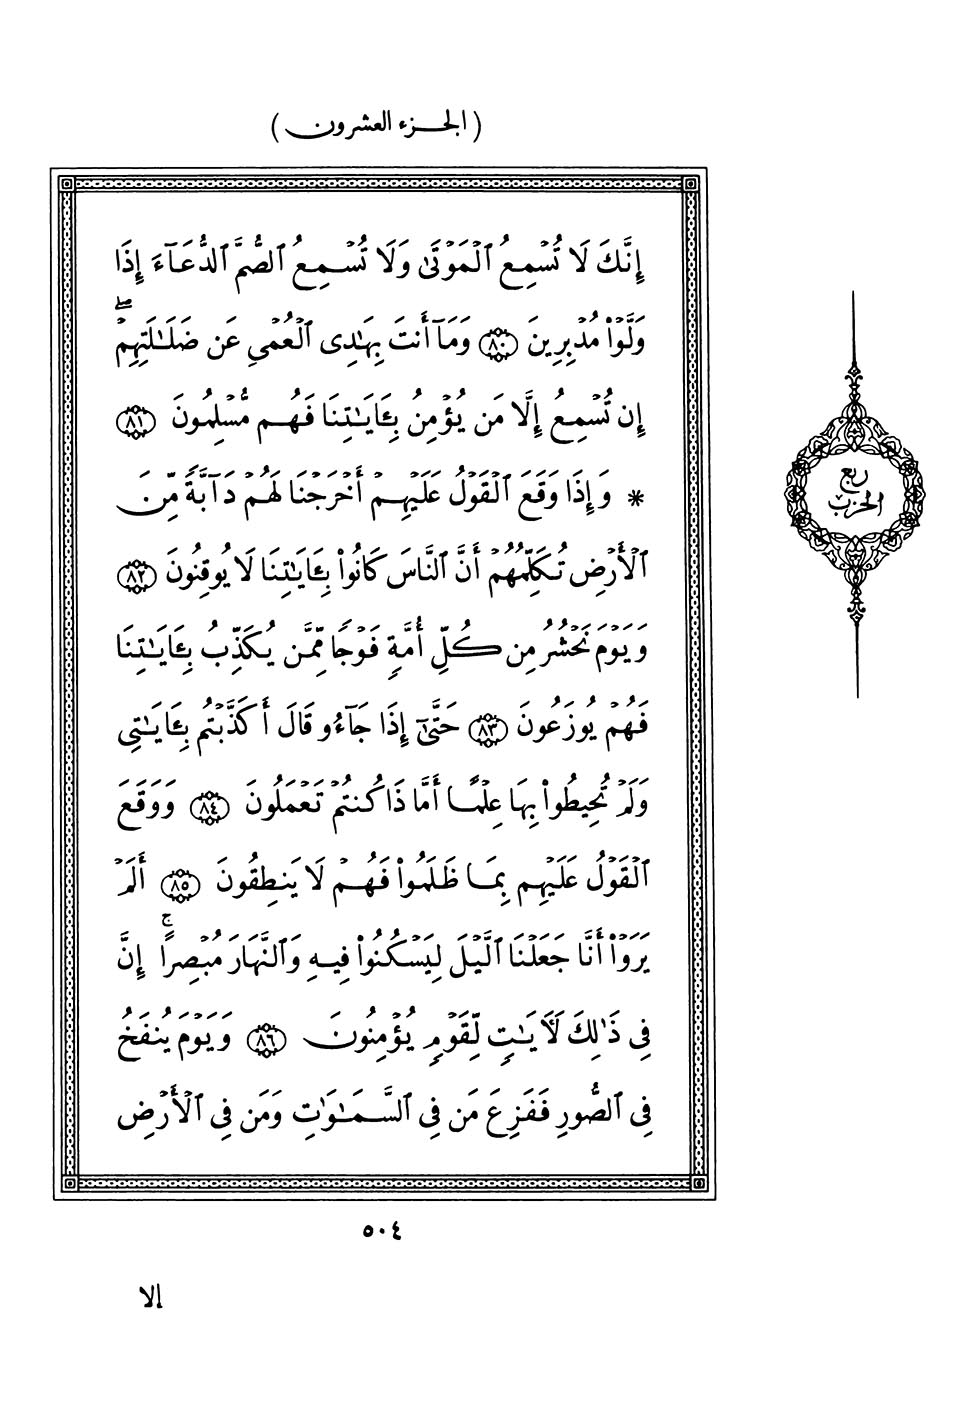 (الجزء العشرون)
إِنَّكَ لَا تُسْمِعُ ٱلْمَوْتَىٰ وَلَا تُسْمِعُ ٱلصُّمَّ ٱلدُّعَآءَ إِذَا
وَلَّوْا۟ مُدْبِرِينَ ٨٠ وَمَآ أَنتَ بِهَـٰدِى ٱلْعُمْىِ عَن ضَلَـٰلَتِهِمْ ۖ
إِن تُسْمِعُ إِلَّا مَن يُؤْمِنُ بِـَٔايَـٰتِنَا فَهُم مُّسْلِمُونَ ٨١
* وَإِذَا وَقَعَ ٱلْقَوْلُ عَلَيْهِمْ أَخْرَجْنَا لَهُمْ دَآبَّةً مِّنَ
ٱلْأَرْضِ تُكَلِّمُهُمْ أَنَّ ٱلنَّاسَ كَانُوا۟ بِـَٔايَـٰتِنَا لَا يُوقِنُونَ ٨٢
وَيَوْمَ نَحْشُرُ مِن كُلِّ أُمَّةٍ فَوْجًا مِّمَّن يُكَذِّبُ بِـَٔايَـٰتِنَا
فَهُمْ يُوزَعُونَ ٨٣ حَتَّىٰٓ إِذَا جَآءُو قَالَ أَكَذَّبْتُم بِـَٔايَـٰتِى
وَلَمْ تُحِيطُوا۟ بِهَا عِلْمًا أَمَّا ذَا كُنتُمْ تَعْمَلُونَ ٨٤ وَوَقَعَ
ٱلْقَوْلُ عَلَيْهِم بِمَا ظَلَمُوا۟ فَهُمْ لَا يَنطِقُونَ ٨٥ أَلَمْ
يَرَوْا۟ أَنَّا جَعَلْنَا ٱلَّيْلَ لِيَسْكُنُوا۟ فِيهِ وَٱلنَّهَارَ مُبْصِرًا ۚ إِنَّ
فِى ذَٰلِكَ لَـَٔايَـٰتٍ لِّقَوْمٍ يُؤْمِنُونَ ٨٦ وَيَوْمَ يُنفَخُ
فِى ٱلصُّورِ فَفَزِعَ مَن فِى ٱلسَّمَـٰوَٰتِ وَمَن فِى ٱلْأَرْضِ
ربع
الحزب
٥٠٤
إلا